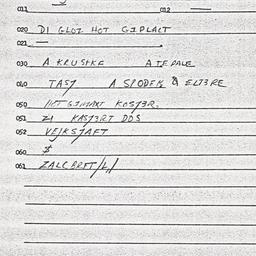 011 012
020 DI GLOZ HOT GIPLAET
021 —
030 A KRUSHKE A TEPALE
040 TASJ A SPODEK & ELZERE
050 KOSZER
051 21 KASZERT DOS
052 VEJKSZAFT
060 $
061 ZALCBRET/L/